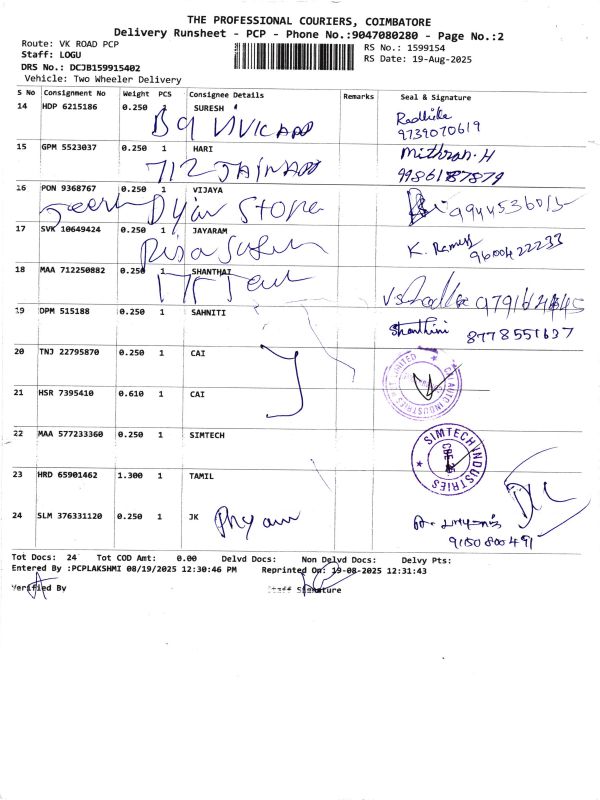 THE PROFESSIONAL COURIERS, COIMBATORE
Delivery Runsheet - PCP - Phone No.:9047080280 - Page No.:2
Route: VK ROAD PCP
RS No.: 1599154
Staff: LOGU
RS Date: 19-Aug-2025
DRS No.: DCJB159915402
Vehicle: Two Wheeler Delivery
S No Consignment No Weight PCS Consignee Details Remarks Seal & Signature
14 HDP 6215186 0.250 1 SURESH
Radhika
9739070619
15 GPM 5523037 0.250 1 HARI
Mithran.H
712 JAIN APP
9986187879
16 PON 9368767 0.250 1 VIJAYA
Store
17 SVK 10649424 0.250 1 JAYARAM
K. Ramesh
9600422233
18 MAA 712250882 0.250 1 SHANTHAI
19 DPM 515188 0.250 1 SAHNITI
Shanthini 8778551637
20 TNJ 22795870 0.250 1 CAI
21 HSR 7395410 0.610 1 CAI
22 MAA 577233360 0.250 1 SIMTECH
SIMTECH INDUSTRIES
23 HRD 65901462 1.300 1 TAMIL
24 SLM 376331120 0.250 1 JK
9150800491
Tot Docs: 24 Tot COD Amt: 0.00 Delvd Docs: Non Delvd Docs: Delvy Pts:
Entered By :PCPLAKSHMI 08/19/2025 12:30:46 PM Reprinted On: 19-08-2025 12:31:43
Verified By Staff Signature